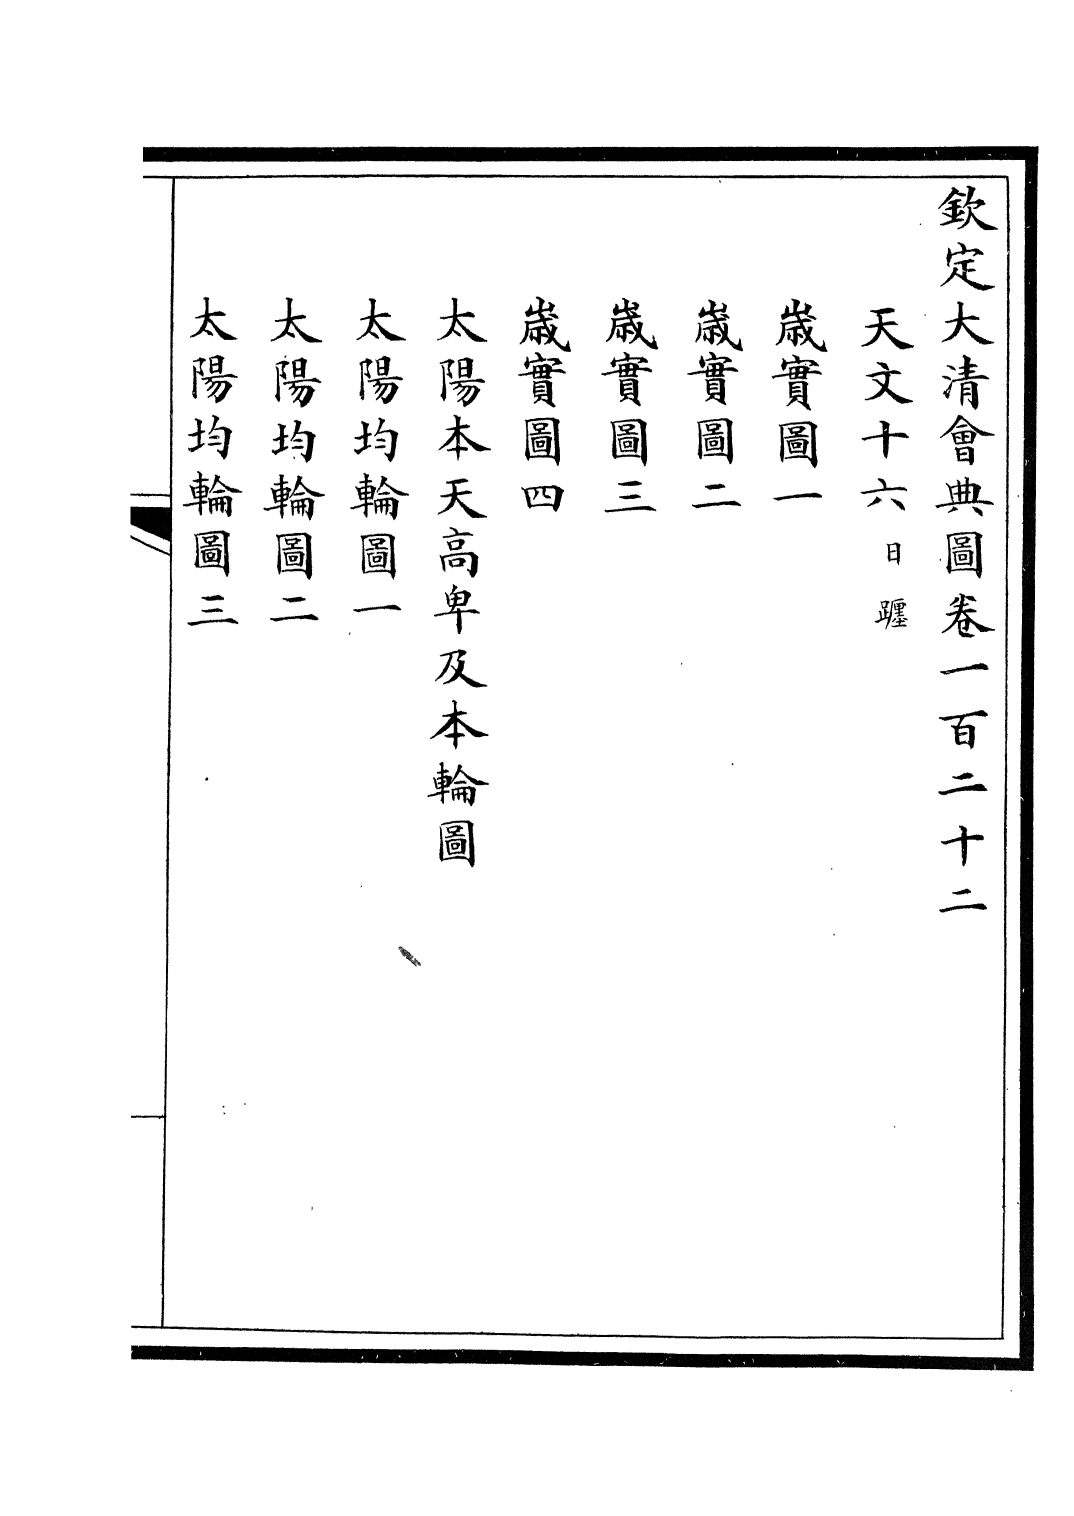 欽定大清會典圖卷一百二十二
天文十六 日躔
歲實圖一
歲實圖二
歲實圖三
歲實圖四
太陽本天高卑及本輪圖
太陽均輪圖一
太陽均輪圖二
太陽均輪圖三